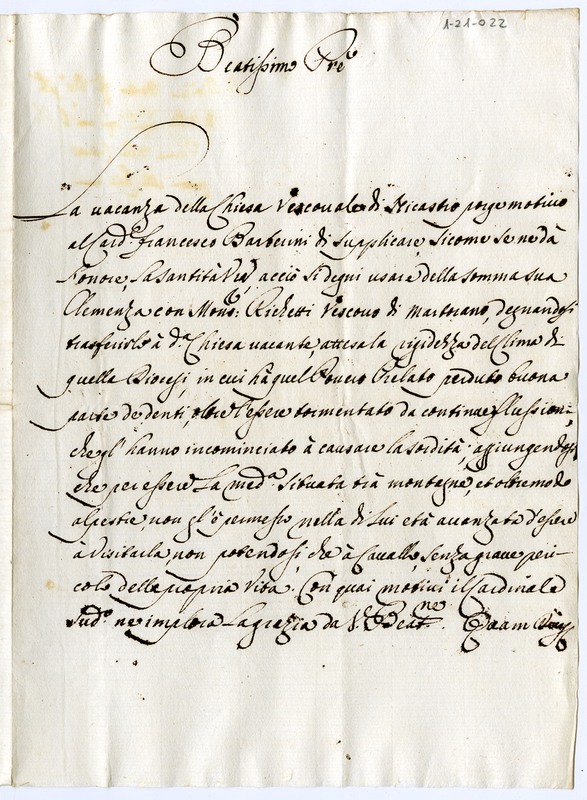 1-21-022
Beatissimo Pre
La vacanza della Chiesa Vescovale di Nicastro porge motivo
al Card.e Francesco Barberini di supplicare, sicome se ne dà
l'onore, la Santità V.ra, acciò si degni usare della somma sua
Clemenza con Mons.r Richetti Vescovo di Martorano, degnandosi
trasferirlo à d.a Chiesa vacante, attesa la rigidezza del Clima di
quella Diocesi, in cui hà quel Povero Prelato perduto buona
parte de denti, oltre l'essere tormentato da continue flussioni,
che gl' hanno incominciato à causare la sordità; aggiungendosi
che per essere La med.a situata trà montagne, et oltremodo
alpestre, non gl'è permesso nella di Lui età avanzata d'essere
à visitarla, non potendosi, che à Cavallo, senza grave peri-
colo della propria Vita. Con quai motivi il Cardinale
Sud.o ne implora La grazia da V. Beat.ne